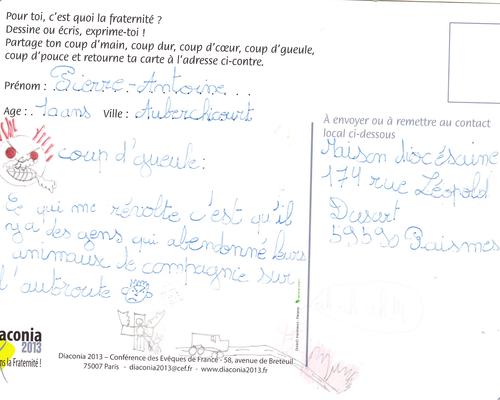 Pour toi, c'est quoi la fraternité ?
Dessine ou écris, exprime-toi !
Partage ton coup d'main, coup dur, coup d'cœur, coup d'gueule,
coup d'pouce et retourne ta carte à l'adresse ci-contre.
Prénom : Pierre-Antoine
Age : ans Ville : Auberchicourt
coup d'gueule :
Ce qui me révolte c'est qu'il
y a des gens qui abandonné leurs
animaux de compagnie sur
l'autoroute
À envoyer ou à remettre au contact
local ci-dessous
Maison diocésaine
174 rue Léopold
Dusart
59590 Raismes
aconia
2013
ns la Fraternité !
Diaconia 2013 – Conférence des Evêques de France - 58, avenue de Breteuil
75007 Paris - diaconia2013@cef.fr - www.diaconia2013.fr